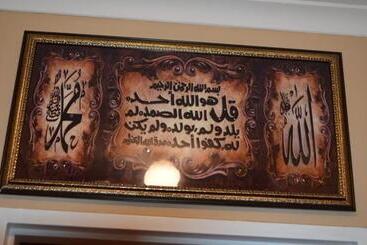 الله
بسم الله الرحمن الرحيم
قل هو الله احد
الله الصمد لم
يلد ولم يولد ولم يكن
له كفوا احد صدق الله العظيم
محمد